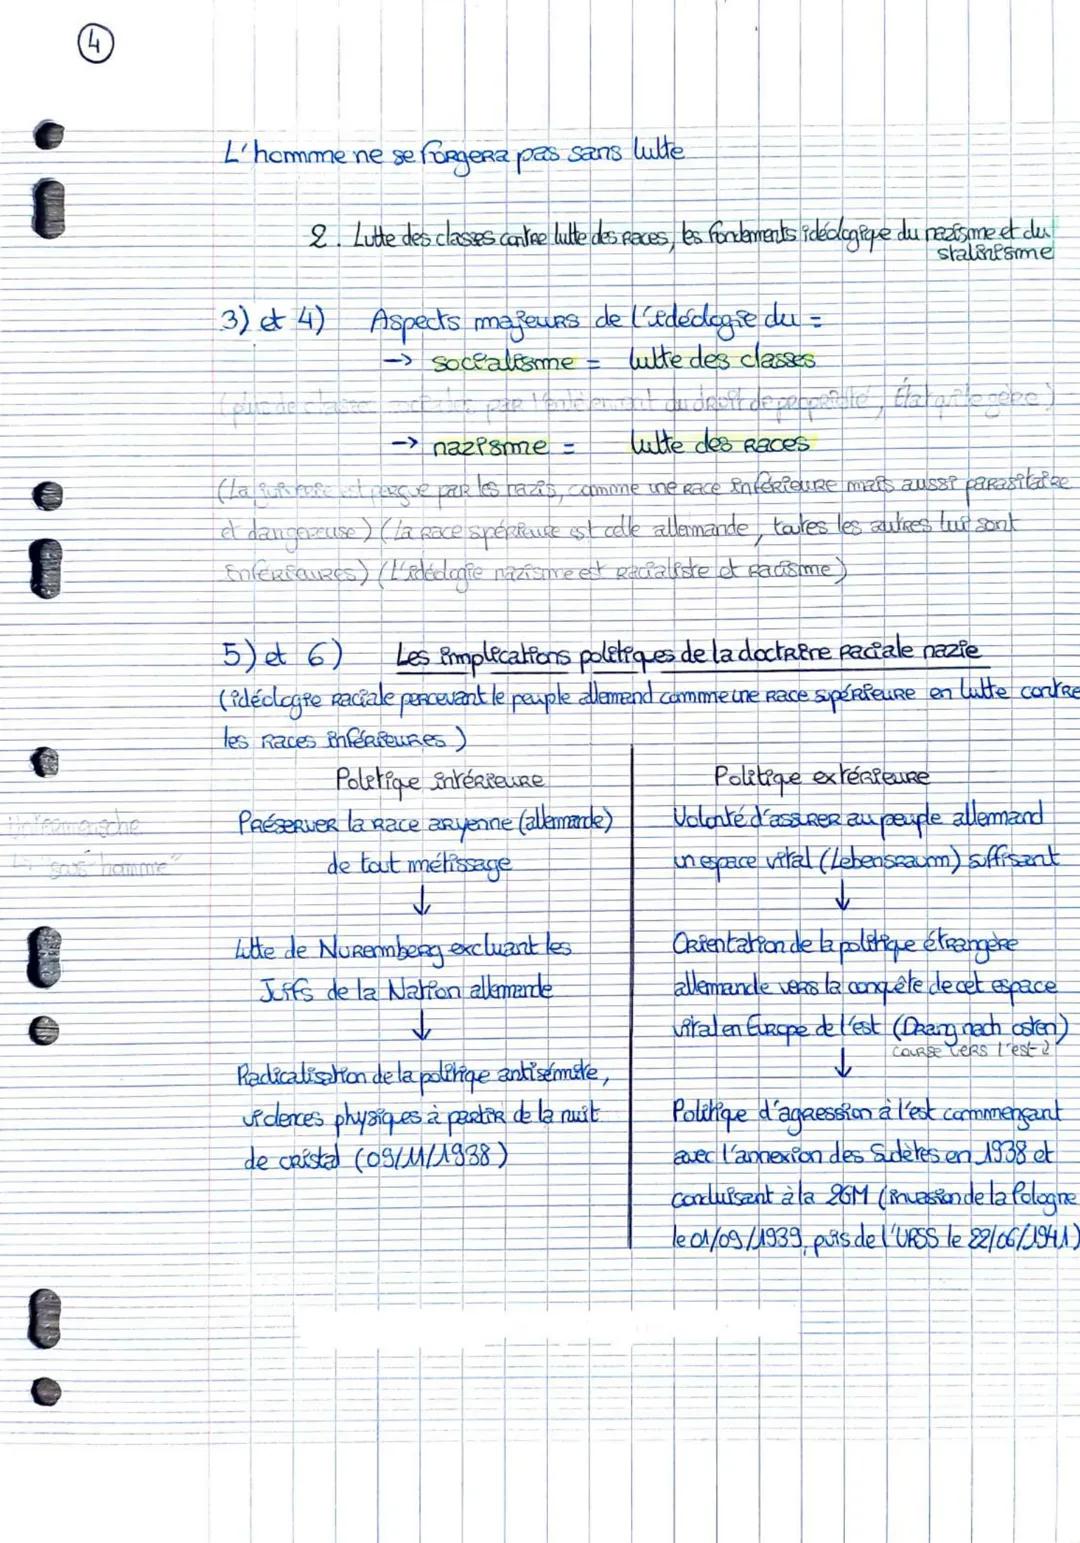 4
L'homme ne se forgera pas sans lutte
2. Lutte des classes contre lutte des races, les fondements idéologique du nazisme et du
stalinisme
3) et 4) Aspects majeurs de l'idéologie du =
→ socialisme = lutte des classes
(plus de classe par du droit de propriété, État qui le gère)
→ nazisme = lutte des races
(La perçue par les nazis, comme une race inférieure mais aussi parasitaire
et dangereuse) (La race spérieure est celle allemande, toutes les autres lui sont
inférieures) (L'idéologie nazisme est racialiste et racisme)
5) et 6) Les implications politiques de la doctrire raciale nazie
(idéologie raciale percevant le peuple allemend comme une race supérieure en lutte contre
les races inférieures)
Politique intérieure
Préserver la race aryenne (allemande)
de tout métissage
↓
Lutte de Nuremberg excluant les
Juifs de la Nation allemande
↓
Radicalisation de la politique antisémite,
violences physiques à partir de la nuit
de cristal (09/11/1938)
Politique extérieure
Volonté d'assurer au peuple allemand
un espace vital (Lebensraum) suffisant
↓
Orientation de la politique étrangère
allemande vers la conquête de cet espace
vital en Europe de l'est (Drang nach osten)
course vers l'est
↓
Politique d'agression à l'est commençant
avec l'annexion des Sudètes en 1938 et
conduisant à la 2GM (invasion de la Pologne
le 01/09/1939, puis de l'URSS le 22/06/1941)
Untermensche
↳ "sous-homme"